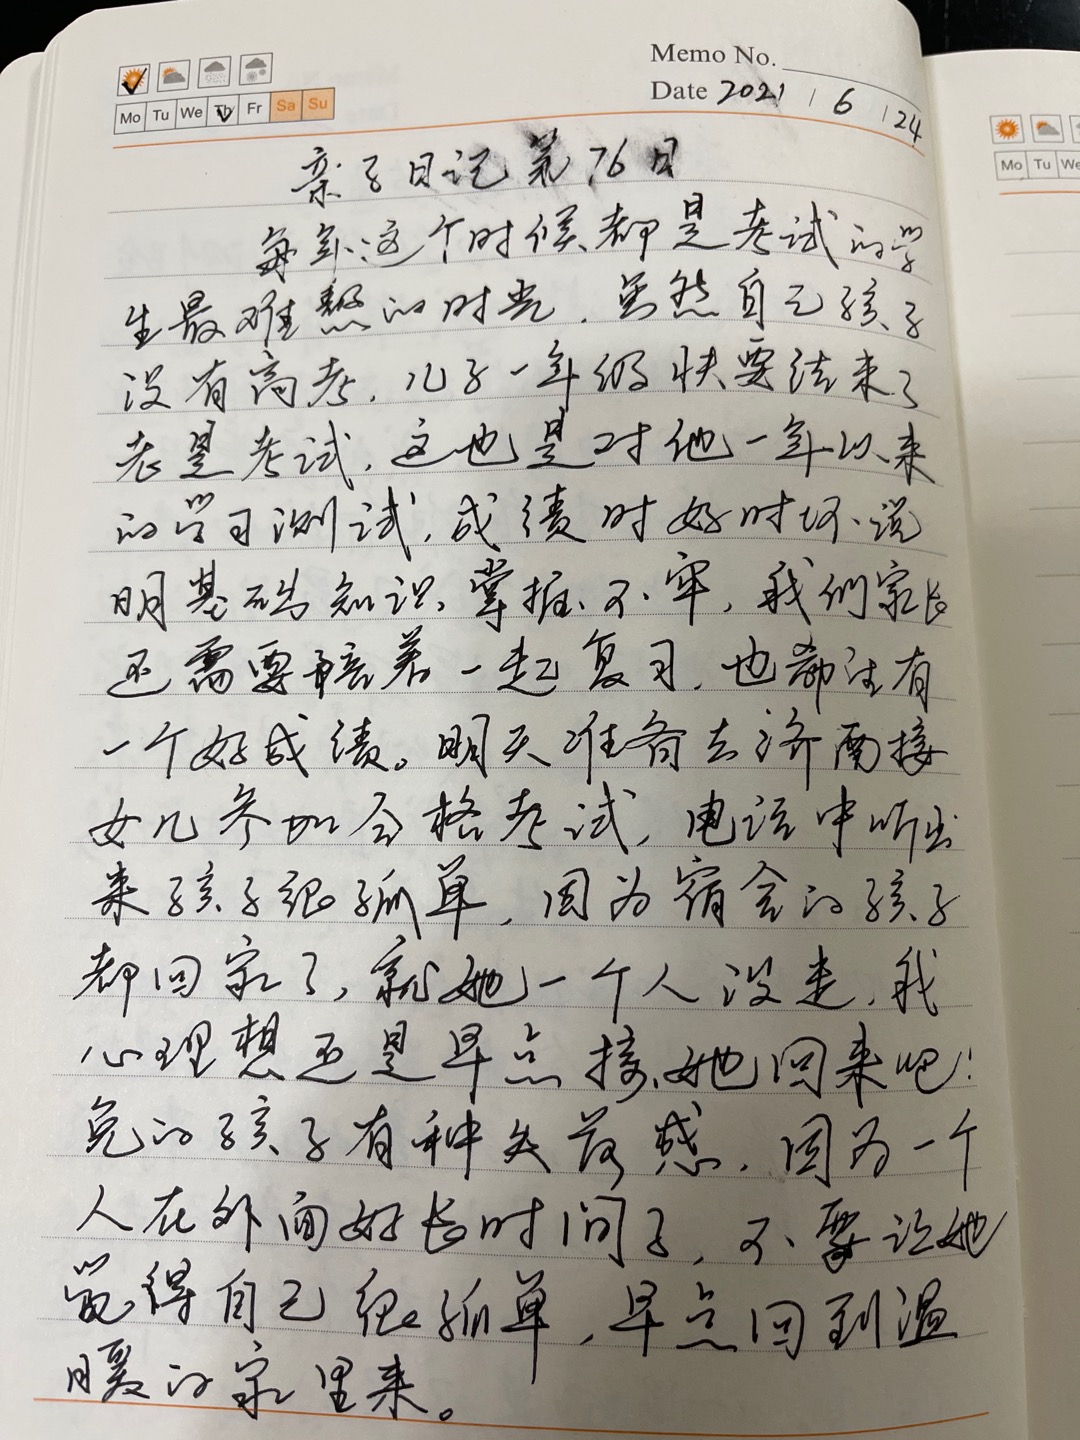 Memo No.
Mo Tu We Th Fr Sa Su
Date 2021 / 6 / 24
Mo Tu We
亲子日记第76日
每年这个时候都是考试的学
生最难熬的时光，虽然自己孩子
没有高考，儿子一年级快要结来了
老是考试，这也是对他一年以来
的学习测试，成绩时好时坏，说
明基础知识掌握不牢，我们家长
还需要陪着一起复习，也都注有
一个好成绩。明天准备去济南接
女儿参加合格考试，电话中听出
来孩子很孤单，因为宿舍的孩子
都回家了，就她一个人没走，我
心理想还是早点接她回来吧！
免的孩子有种失落感，因为一个
人在外面好长时间了，不要让她
觉得自己很孤单，早点回到温
暖的家里来。